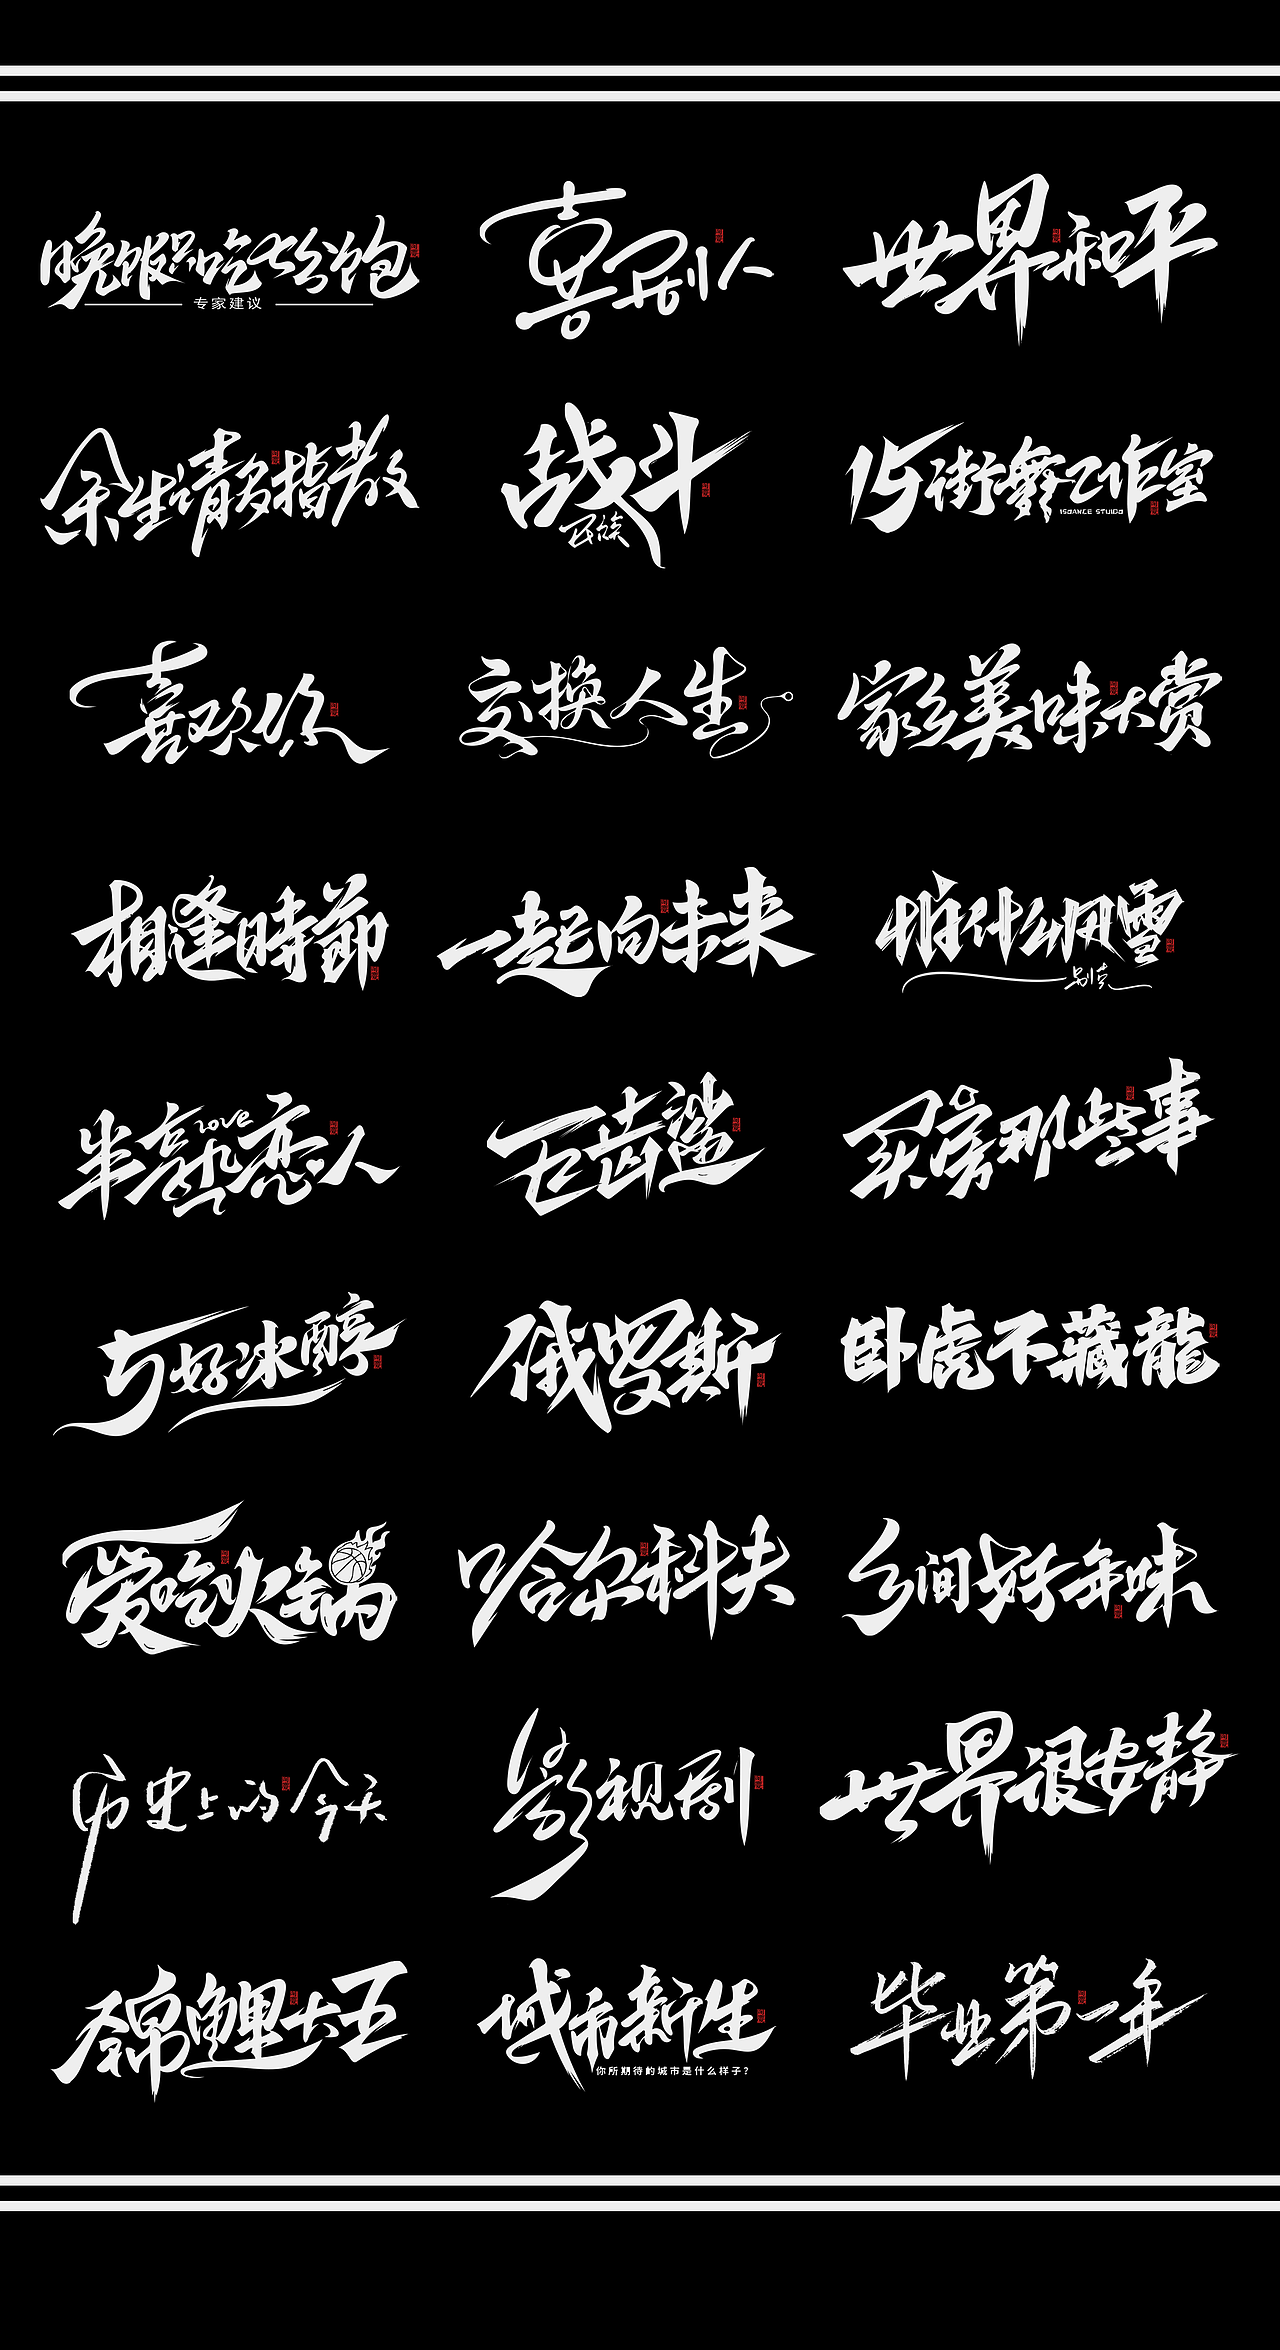 晚饭只吃七分饱
专家建议
喜剧人
世界和平
余生请多指教
战斗
民族
15街舞工作室
喜欢你
交换人生
家乡美味大赏
相逢時節
一起向未来
什么风雪
半熟恋人
love
巨齿鲨
买房那些事
与好冰醇
俄罗斯
卧虎不藏龍
爱吃火锅
哈尔科夫
乡间好年味
历史上的今天
影视剧
世界很安静
锦鲤大王
城市新生
你所期待的城市是什么样子?
毕业第一年